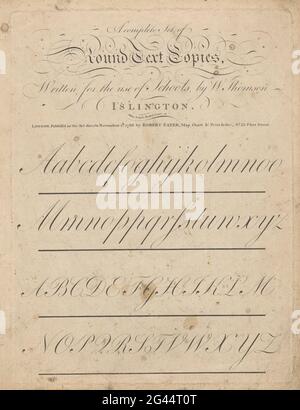 A complete Set of
Round Text Copies,
Written for the use of Schools, by W. Thomson
ISLINGTON.
LONDON, Publish'd as the Act directs November 1st by ROBERT SAYER, Map, Chart & Printseller, No. 53 Fleet Street.
Aabcdefghijklmnoo
Mmnoppqrsstuwxyz
ABCDEFGHIJKLM
NOPQRSTVWXYZ
alamy
Image ID: 2G44T0T
www.alamy.com